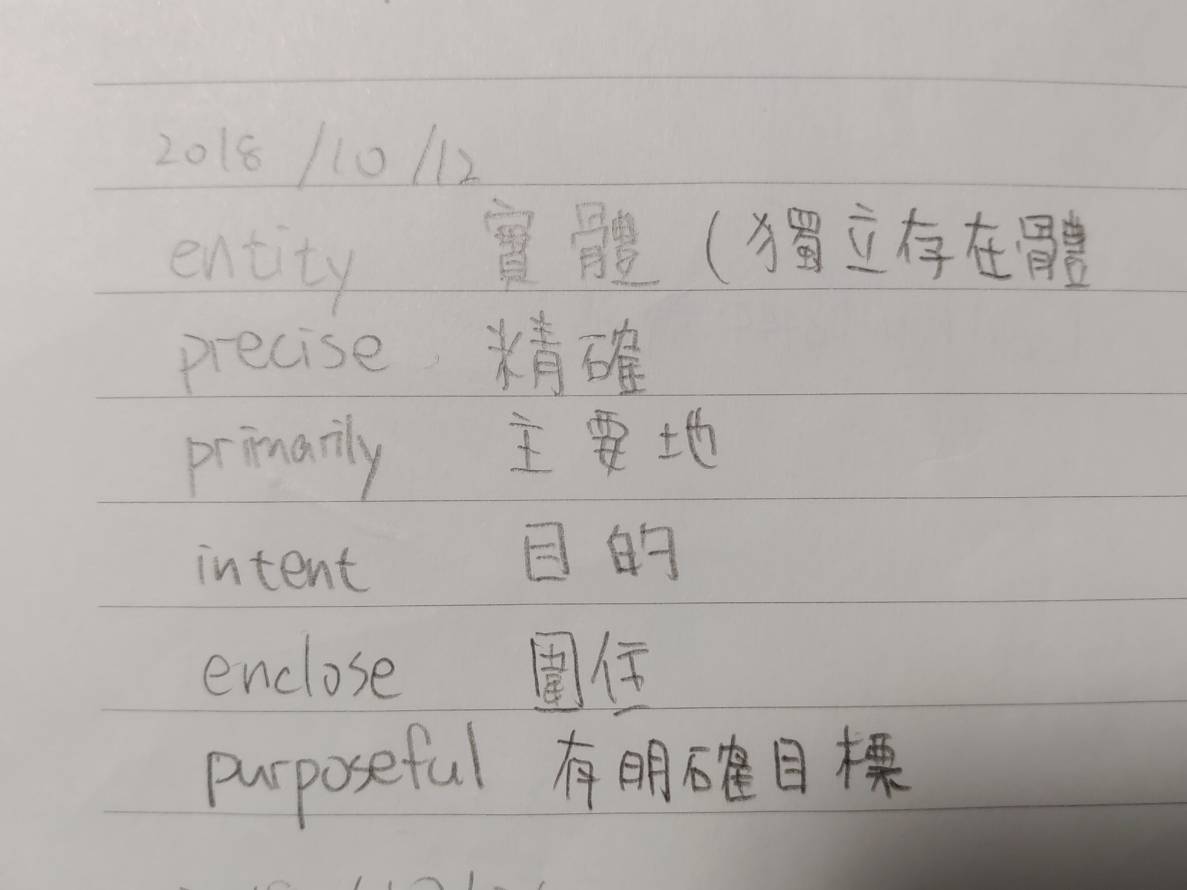 2018/10/12
entity 實體 (獨立存在體
precise 精確
primarily 主要地
intent 目的
enclose 圍住
purposeful 有明確目標